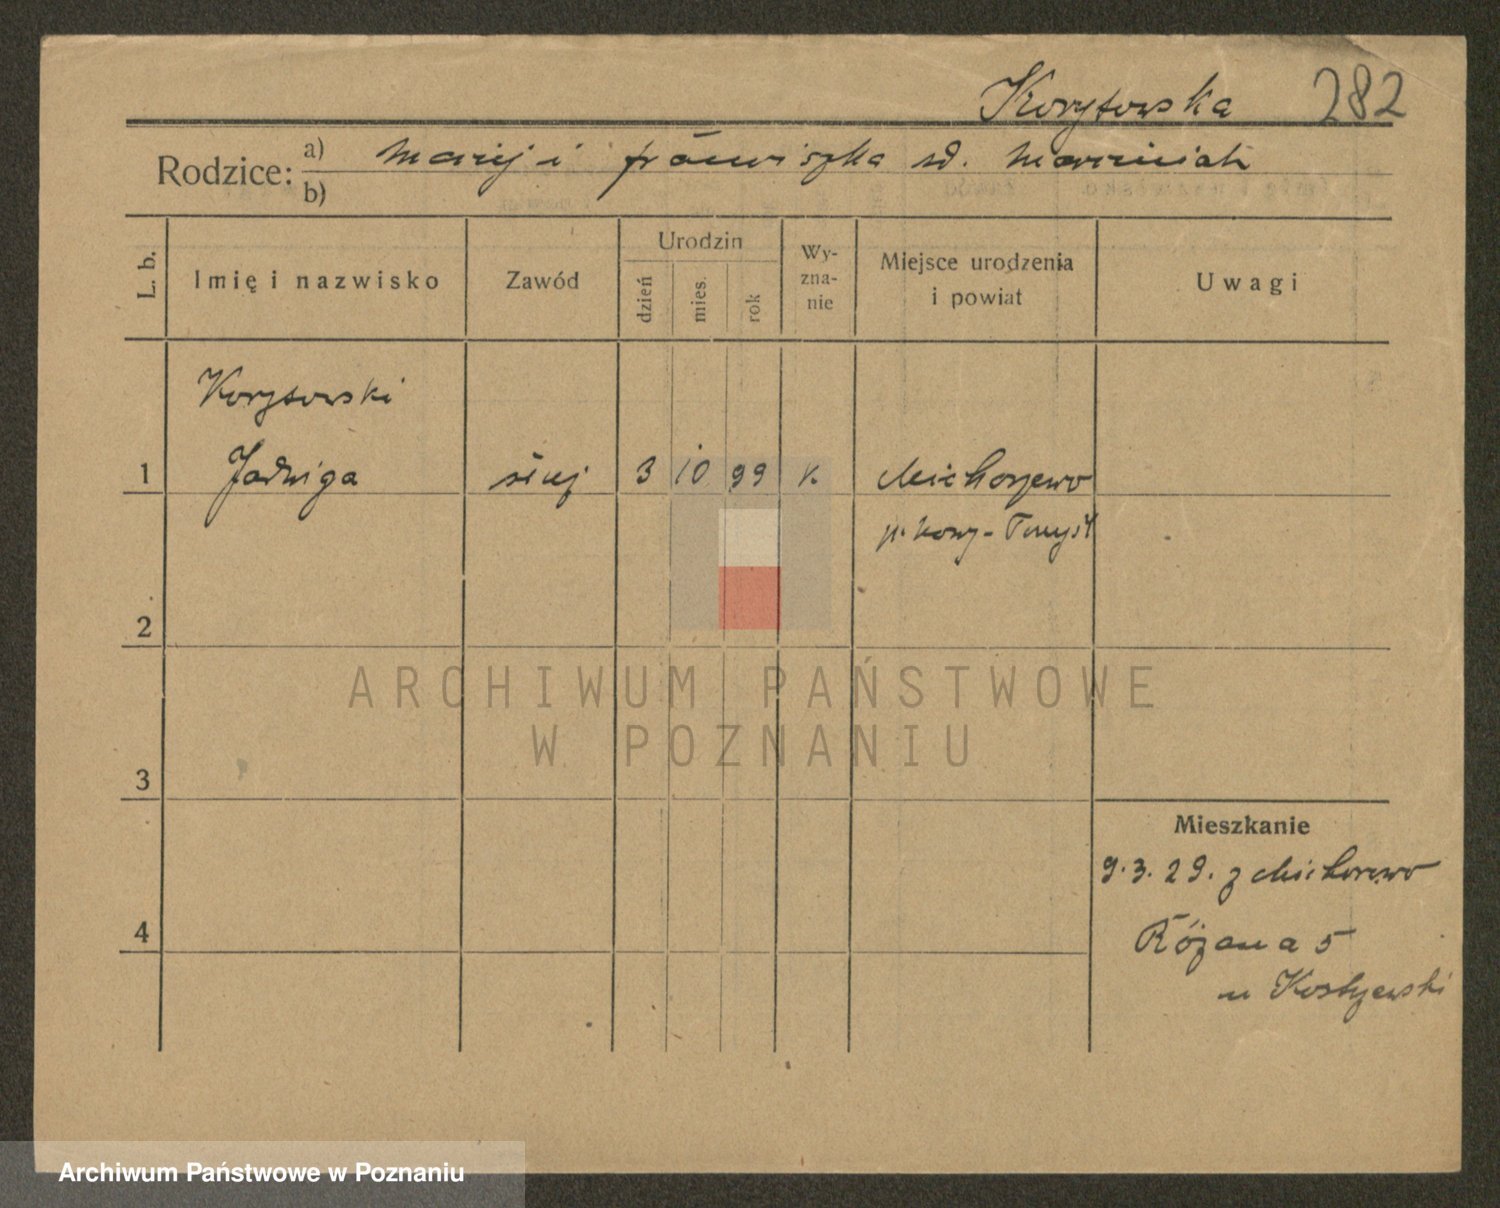 Korytowska 282
Rodzice: a) Maciej i Franciszka zd. Marciniak
b)
L. b.
Imię i nazwisko
Zawód
Urodzin
dzień
mies.
rok
Wy-
zna-
nie
Miejsce urodzenia
i powiat
Uwagi
Korytowski
1 Jadwiga służ 3 10 99 k. Michorzewo
p. Nowy-Tomyśl
2
ARCHIWUM PAŃSTWOWE
W POZNANIU
3
Mieszkanie
9.3.29. z Michorzewo
4 Różana 5
u
Archiwum Państwowe w Poznaniu